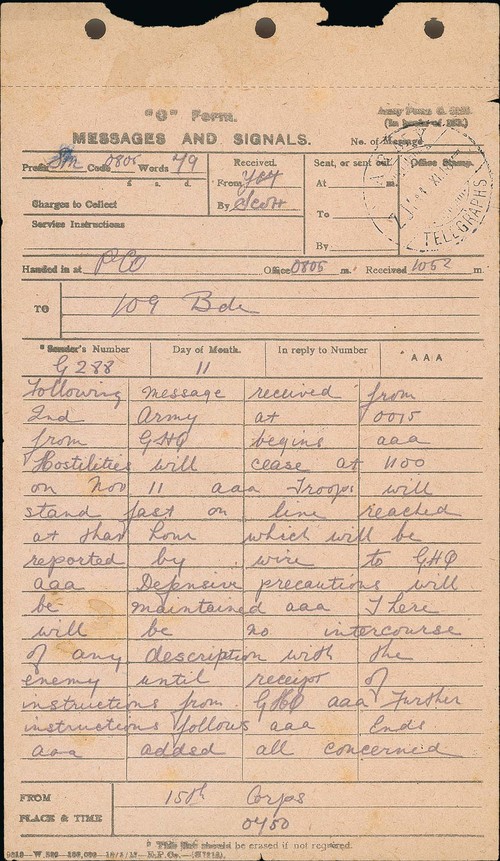 "C" Form.
MESSAGES AND SIGNALS.
No. of Message
Prefix SM Code 0805 Words 79
£ s. d.
Charges to Collect
Service Instructions
Received.
From
By Scott
Sent, or sent out.
At
To
By
Office Stamp.
ARMY
TELEGRAPHS
Handed in at Office 0805 m. Received 1052 m.
TO 109 Bde
*Sender's Number Day of Month. In reply to Number AAA
G 288 11
Following message received from
2nd Army at 0015
from GHQ begins aaa
Hostilities will cease at 1100
on Nov 11 aaa Troops will
stand fast on line reached
at that hour which will be
reported by wire to GHQ
aaa Defensive precautions will
be maintained aaa There
will be no intercourse
of any description with the
enemy until receipt of
instructions from GHQ aaa Further
instructions follows aaa Ends
aaa added all concerned
FROM 15th Corps
PLACE & TIME 0450
* This line should be erased if not required.